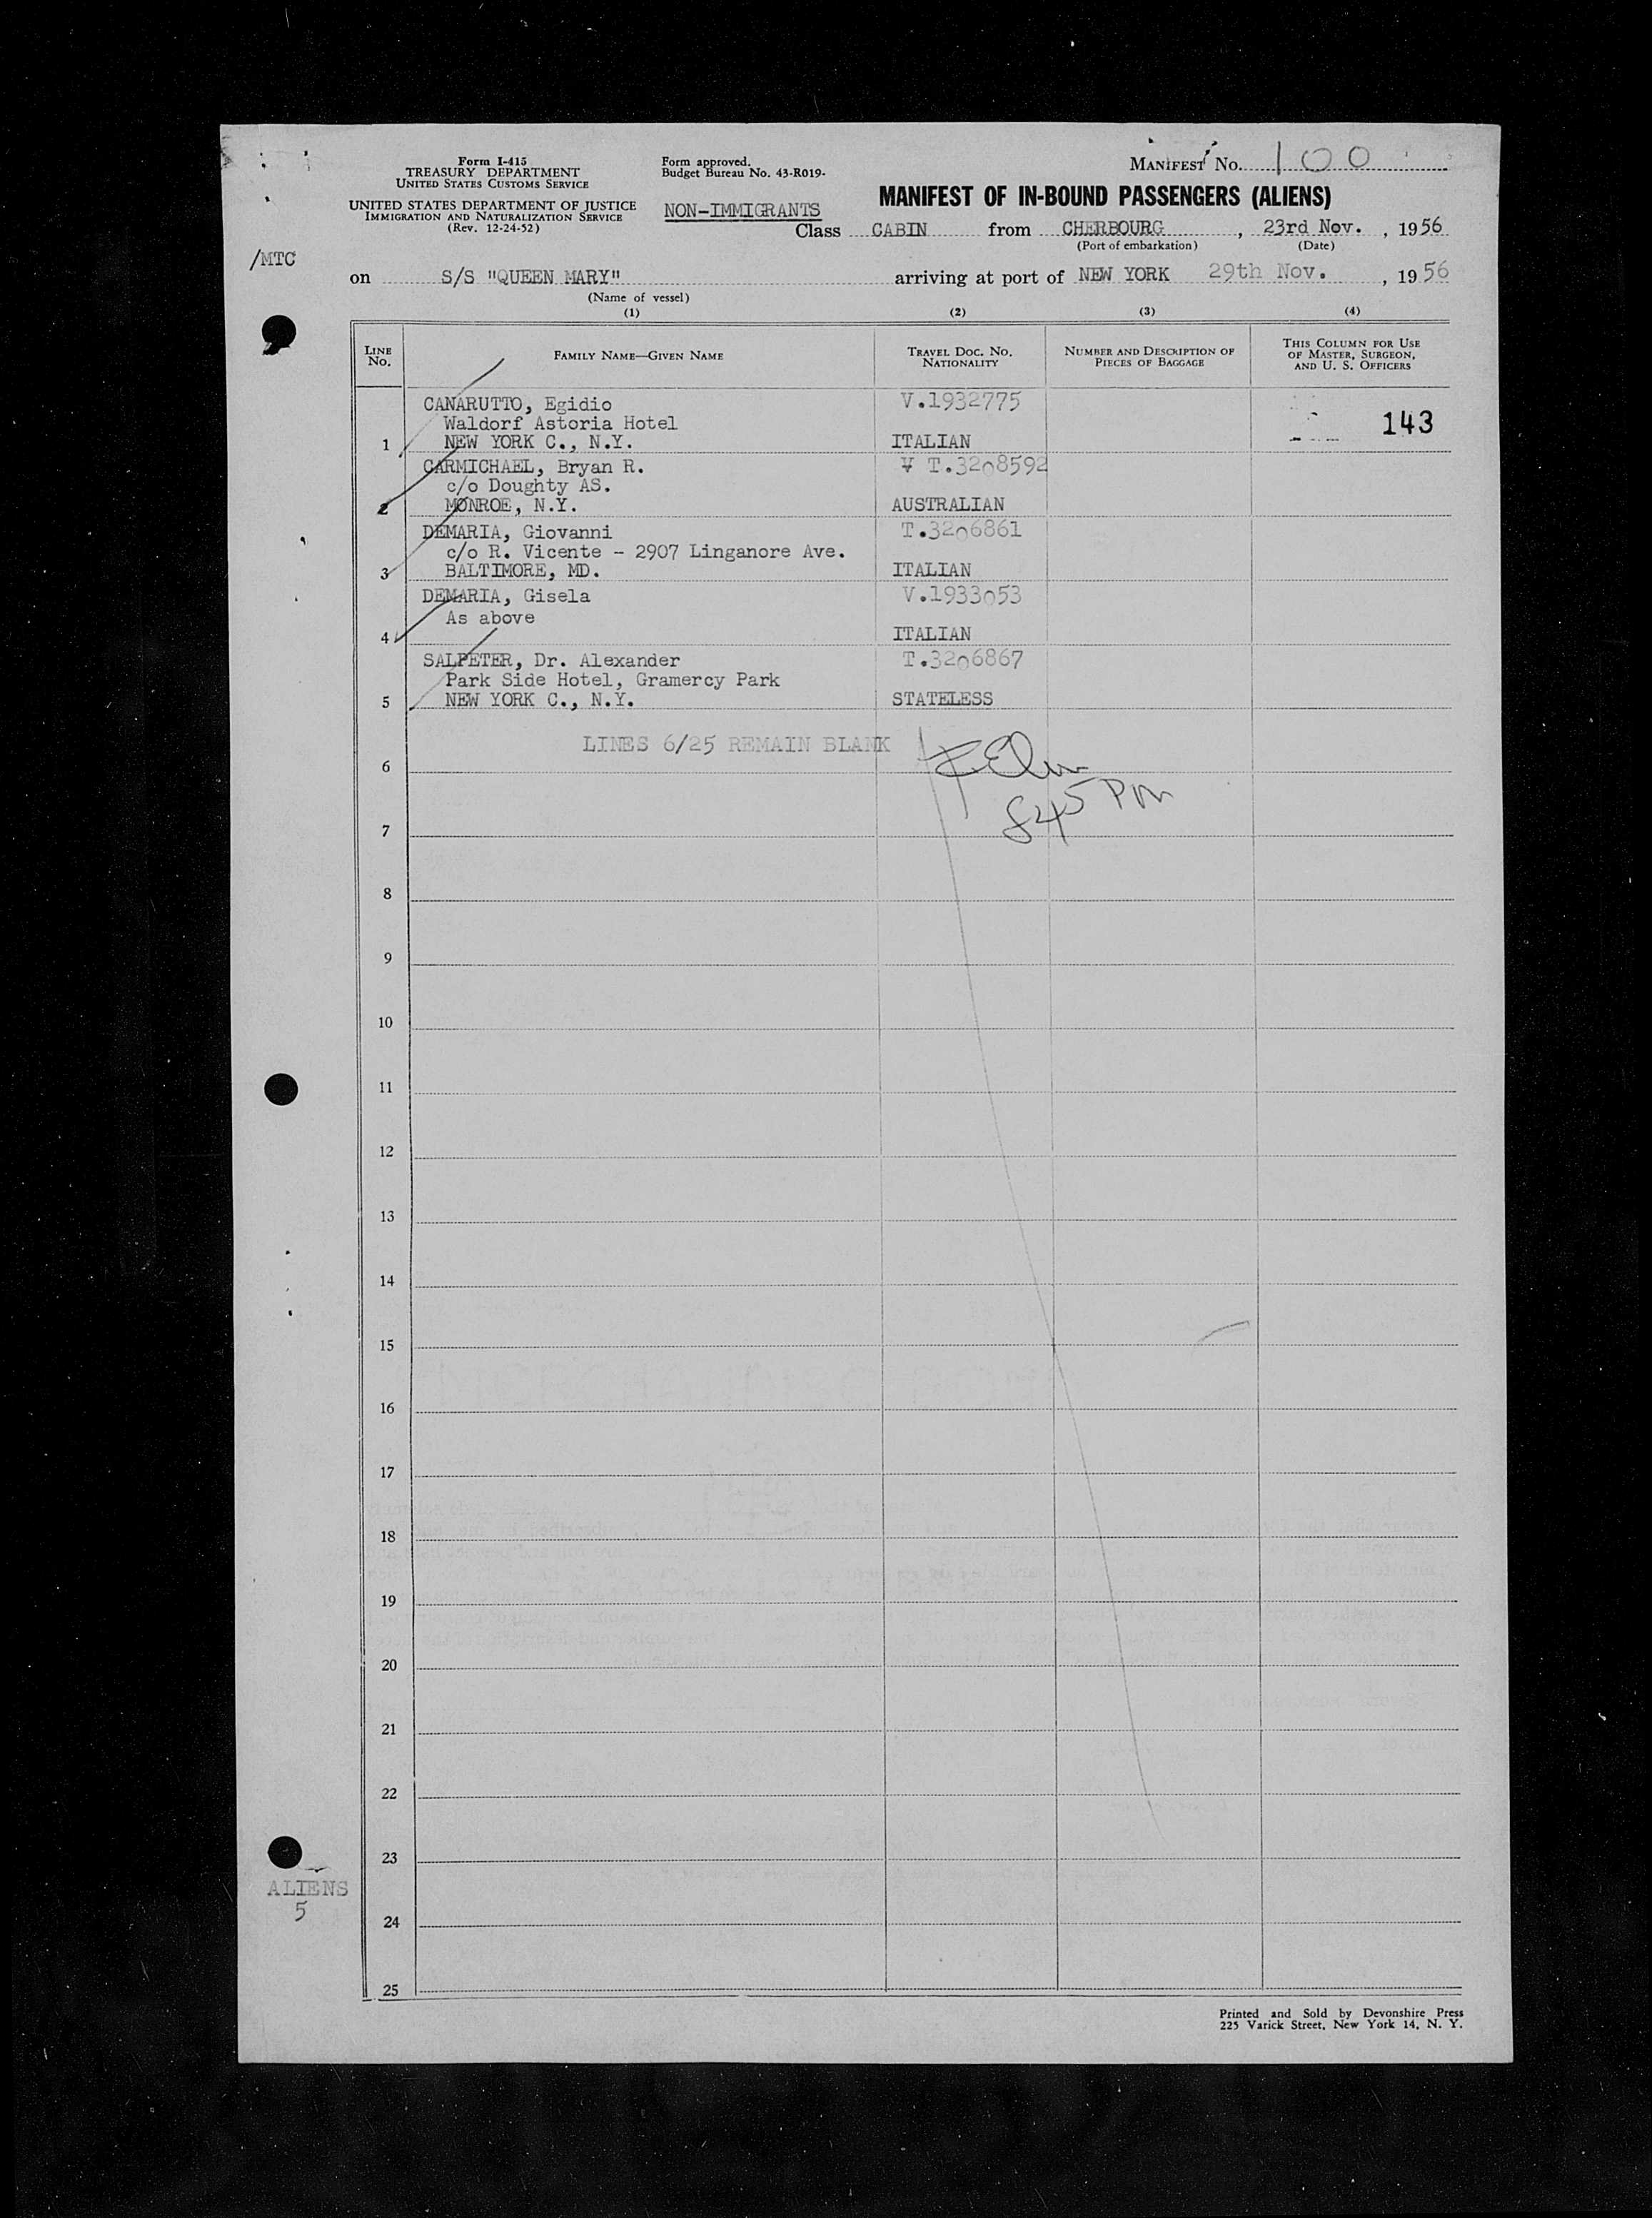 Form I-415
TREASURY DEPARTMENT
UNITED STATES CUSTOMS SERVICE
UNITED STATES DEPARTMENT OF JUSTICE
IMMIGRATION AND NATURALIZATION SERVICE
(Rev. 12-24-52)
Form approved.
Budget Bureau No. 43-R019-
NON-IMMIGRANTS
MANIFEST No. 100
MANIFEST OF IN-BOUND PASSENGERS (ALIENS)
Class CABIN from CHERBOURG, 23rd Nov., 1956
(Port of embarkation) (Date)
/MTC
on S/S "QUEEN MARY" arriving at port of NEW YORK 29th Nov., 1956
(Name of vessel)
(1) (2) (3) (4)
LINE No.
FAMILY NAME—GIVEN NAME
TRAVEL DOC. NO. NATIONALITY
NUMBER AND DESCRIPTION OF PIECES OF BAGGAGE
THIS COLUMN FOR USE OF MASTER, SURGEON, AND U. S. OFFICERS
CANARUTTO, Egidio V.1932775
Waldorf Astoria Hotel 143
1 NEW YORK C., N.Y. ITALIAN
CARMICHAEL, Bryan R. V T.3208592
c/o Doughty AS.
2 MONROE, N.Y. AUSTRALIAN
DEMARIA, Giovanni T.3206861
c/o R. Vicente - 2907 Linganore Ave.
3 BALTIMORE, MD. ITALIAN
DEMARIA, Gisela V.1933053
As above
4 ITALIAN
SALPETER, Dr. Alexander T.3206867
Park Side Hotel, Gramercy Park
5 NEW YORK C., N.Y. STATELESS
LINES 6/25 REMAIN BLANK
6
845 PM
7
8
9
10
11
12
13
14
15
16
17
18
19
20
21
22
23
ALIENS
5
24
25
Printed and Sold by Devonshire Press
225 Varick Street, New York 14, N. Y.